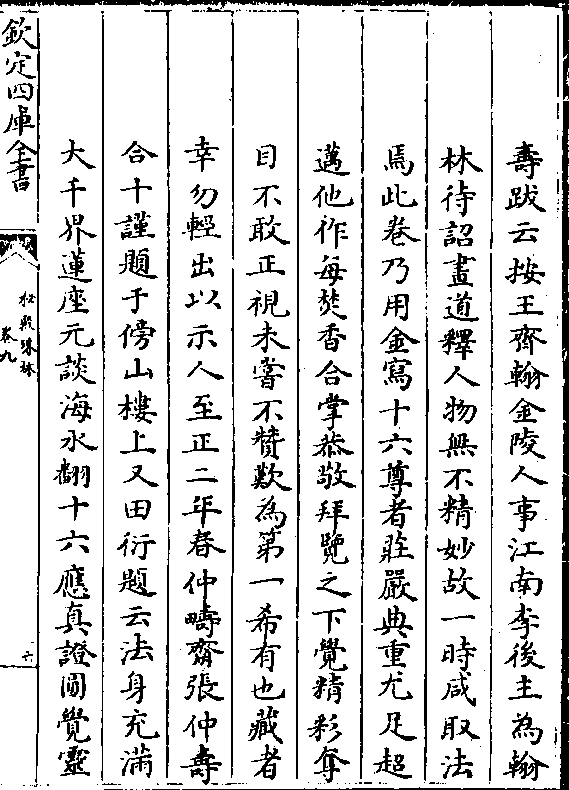 壽跋云按王齊翰金陵人事江南李後主為翰
林待詔畫道釋人物無不精妙故一時咸取法
焉此卷乃用金寫十六尊者莊嚴典重尤足超
邁他作每焚香合掌恭敬拜覽之下覺精彩奪
目不敢正視未嘗不贊歎為第一希有也藏者
幸勿輕出以示人至正二年春仲疇齋張仲壽
合十謹題于傍山樓上又田衍題云法身充滿
大千界蓮座元談海水翻十六應真證圓覺靈
欽定四庫全書
秘殿珠林
卷九
六